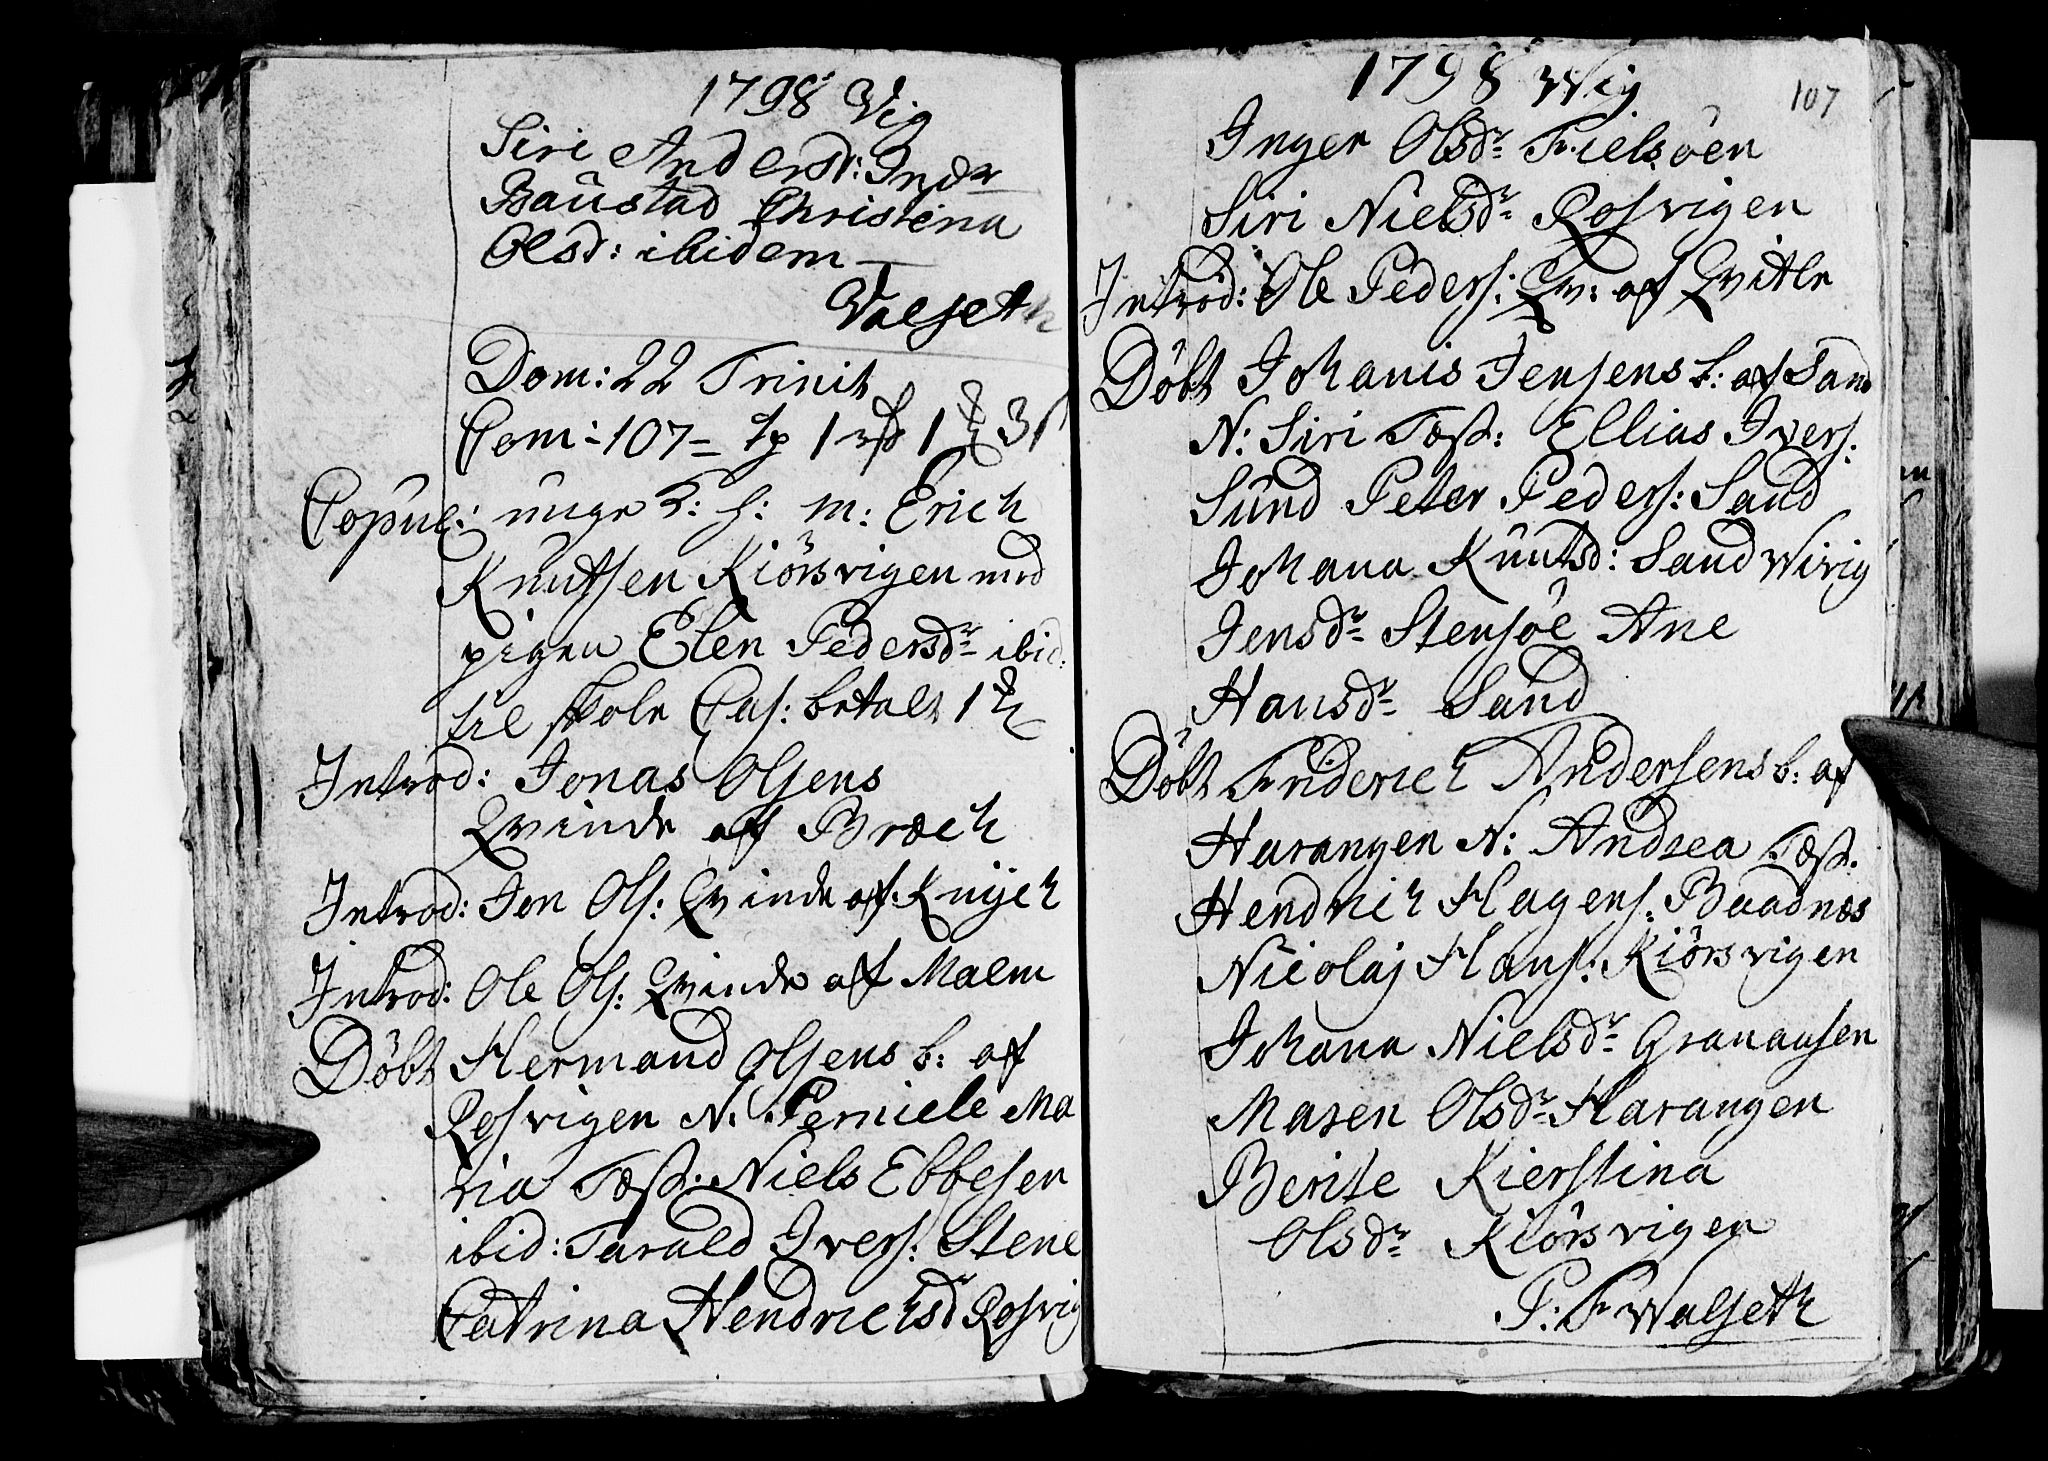 1798 Vig
Siri Andersd: Inder
Baustad Christina
Olsd: ibidem
Valseth
Dom: 22 Trinit
Com: 107
Copul: unge k: s: m: Erich
Knutsen Kiörsvigen med
pigen Elen Pedersdr ibid:
til skole Cas: betalt 1
Introd: Jonas Olsens
Qvinde af Bræch
Introd: Jon Ols: Qvinde af Knyck
Introd: Ole Ols: Qvinde af Malm
Döbt Hermand Olsens b: af
Rosvigen N: Perniele Ma
ria Test: Niels Ebbesen
ibid: Tarald Ivers: Stene
Catrina Hendrichsd Rosvig
1798 Wig
107
Inger Olsdr Frielsöen
Siri Nielsdr Rosvigen
Introd: Ole Peders: Qv: af Qvitle
Döbt Johanis Jensens b: af Sand
N: Siri Test: Ellias Ivers:
Sund Peter Peders: Sand
Johana Knutsd: Sandwivig
Jensdr Stensöe Ane
Hansdr Sand
Döbt Friderich Andersens b: af
Harangen N: Andrea Test:
Hendrich Hagens: Baadnæs
Nicolaj Hans: Kiörsvigen
Johana Nielsdr Granausen
Maren Olsdr Harangen
Berite Kierstina
Olsdr Kiörsvigen
P: F Walseth